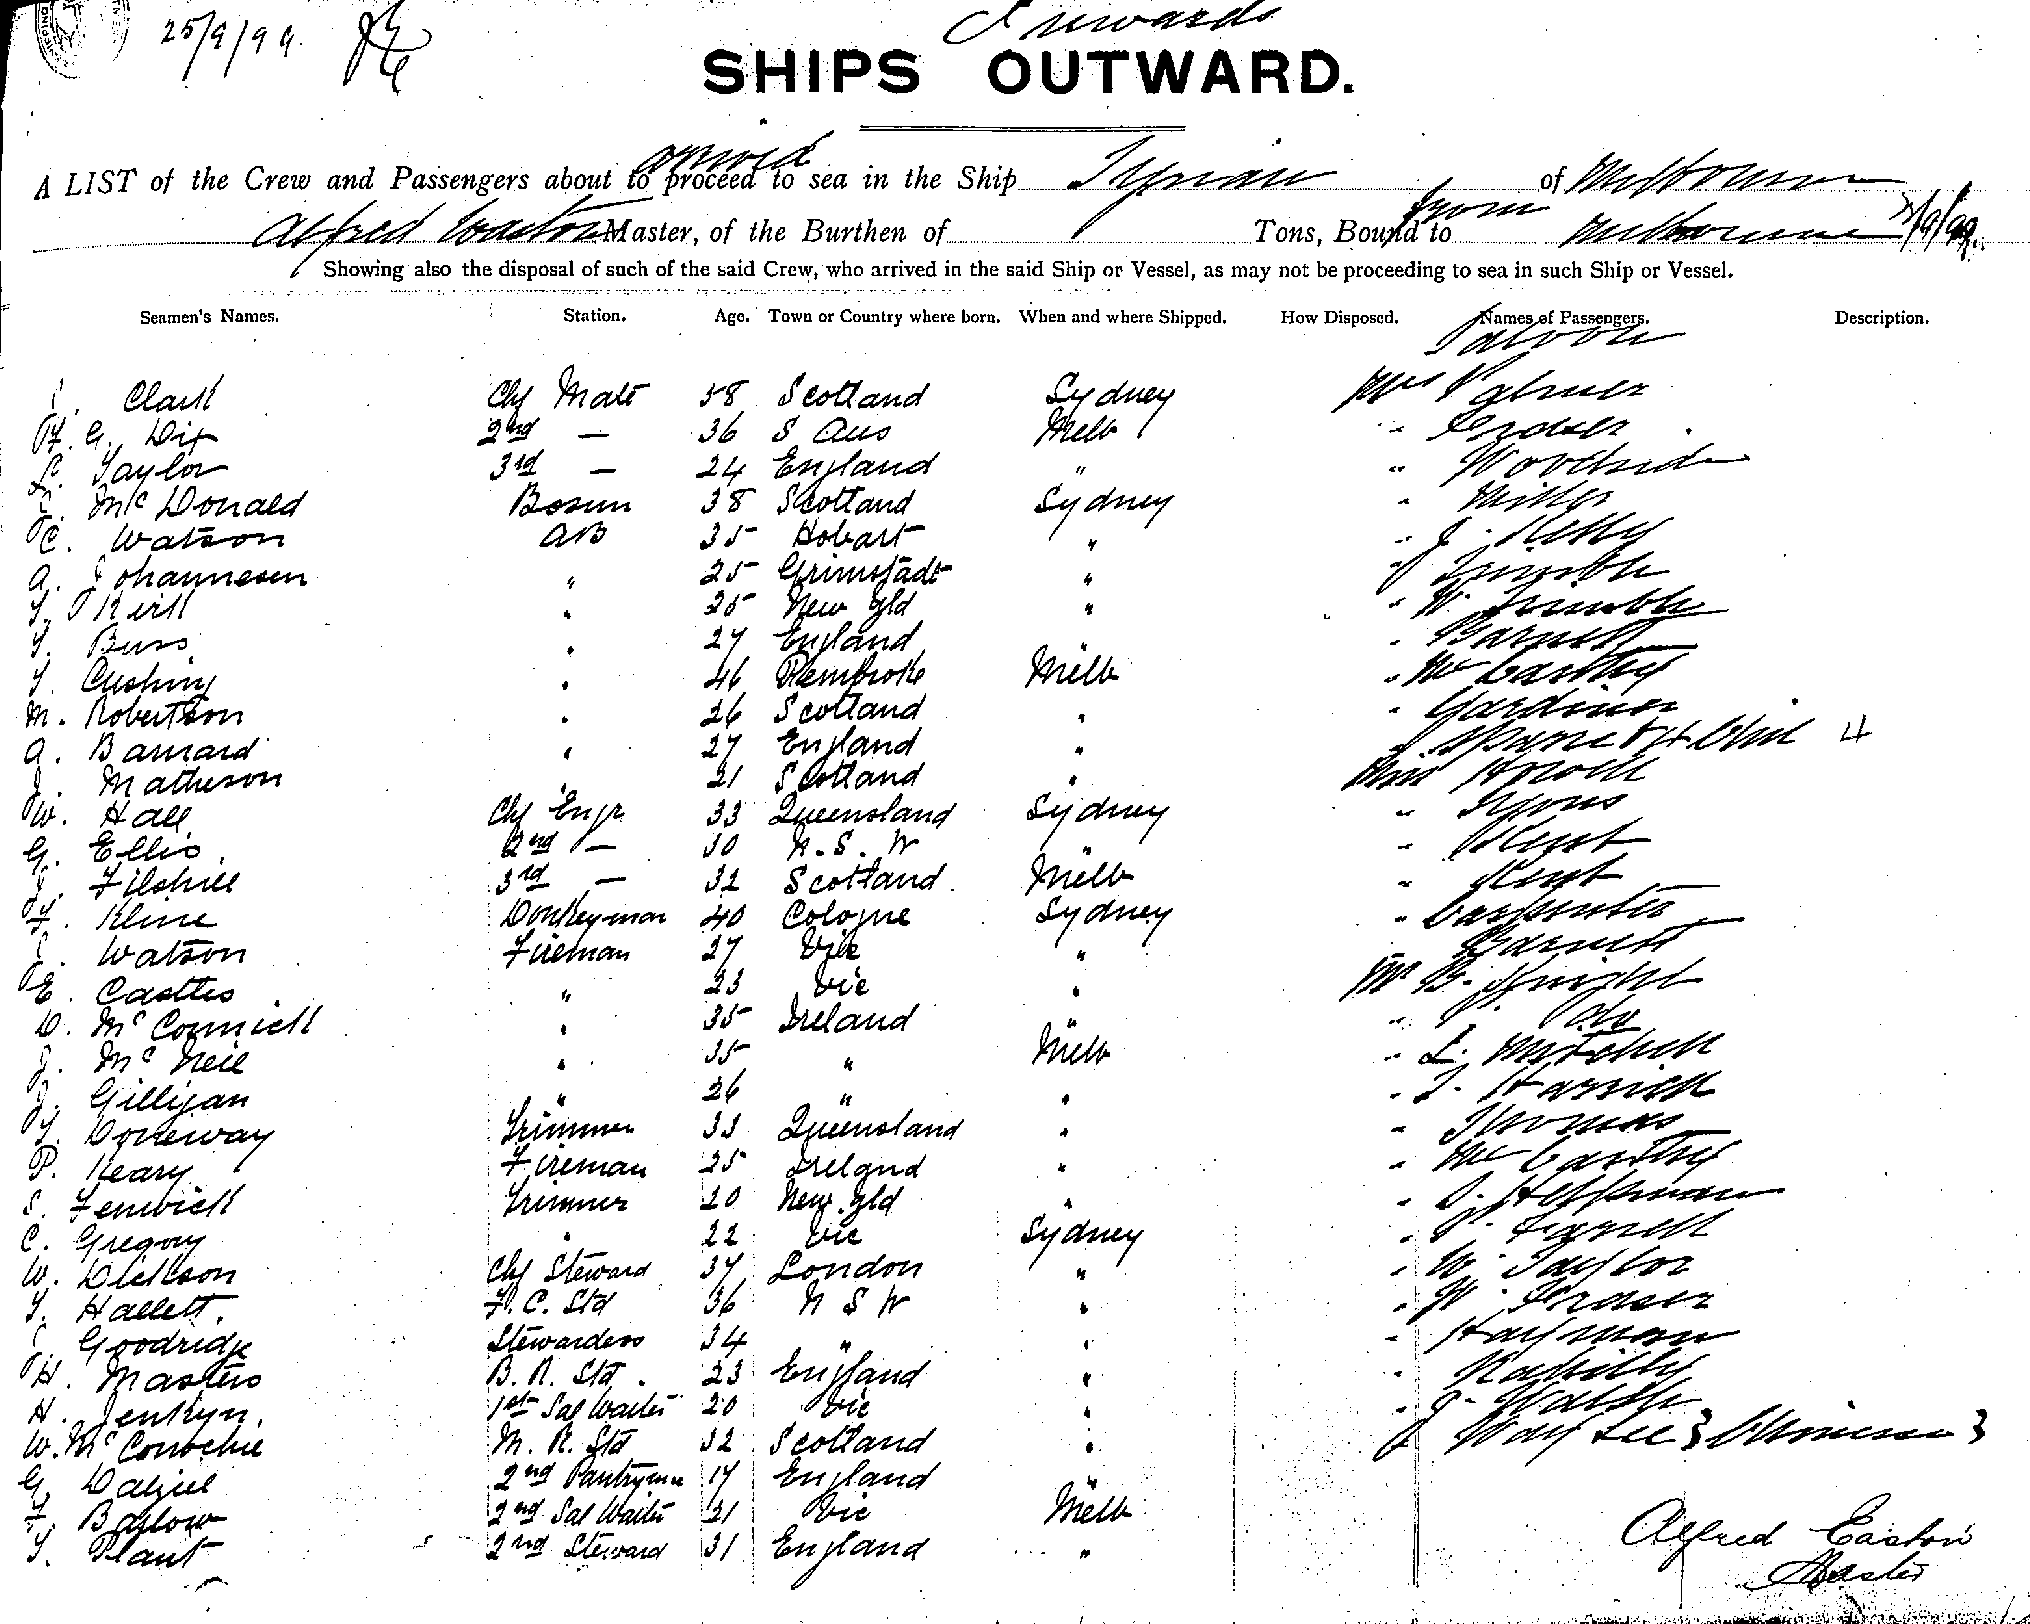 25/9/99
Inwards
SHIPS OUTWARD.
arrived
A LIST of the Crew and Passengers about to proceed to sea in the Ship Tyrian of Melbourne
from
Alfred Easton Master, of the Burthen of Tons, Bound to Melbourne
Showing also the disposal of such of the said Crew, who arrived in the said Ship or Vessel, as may not be proceeding to sea in such Ship or Vessel.
Seamen's Names. Station. Age. Town or Country where born. When and where Shipped. How Disposed. Names of Passengers. Description.
Saloon
Clark Chf Mate 58 Scotland Sydney Mrs Palmer
G. Dix 2nd — 36 S Aus Melb " Fraser
Taylor 3rd — 24 England " " Woodside
McDonald Bosun 38 Scotland Sydney " Miller
C. Watson AB 35 Hobart " " J. Kelly
A. Johannesen " 25 Grimstadt " " Trimble
" 25 New Zld " " W. Trimble
Buss " 27 England " " Barnett
Cushing " 46 Pembroke Melb " McCarthy
M. Robertson " 26 Scotland " " Gardiner
A. Barnard " 27 England " " & 4 Chil 4
J. Matheson " 21 Scotland " Miss Howell
W. Hall Chf Engr 33 Queensland Sydney " Lyons
G. Ellis 2nd — 30 N.S.W " " Kent
J. Filshill 3rd — 32 Scotland Melb " Kent
F. Kline Donkeyman 40 Cologne Sydney " Carpenter
Watson Fireman 27 Vic " Barnett
E. Casttes " 23 Vic " Mr B. Knight
D. McCormick " 35 Ireland " " do
J. McNeil " 35 " Melb " L. Mitchell
J. Gilligan " 26 " " "
Doneway Trimmer 33 Queensland " " Thomas
P. Keary Fireman 25 Ireland " " McCarthy
S. Fenwick Trimmer 20 New Zld " " Heffernan
C. Gregory " 22 Vic Sydney "
W. Dickson Chf Steward 37 London " " W. Taylor
Hallett F.C. Std 36 N S W " " W. Fraser
Goodridge Stewardess 34 " " " Hayman
H. Masters B.R. Std 23 England " "
H. Jenkyn. 1st Sal Waiter 20 Vic " " J. Walsh
W. McConochie M.R. Std 32 Scotland " Way Lee } Chinese }
G. Dalziel 2nd Pantryman 17 England "
F. Barlow 2nd Sal Waiter 21 Vic Melb
Plant 2nd Steward 31 England "
Alfred Easton
Master